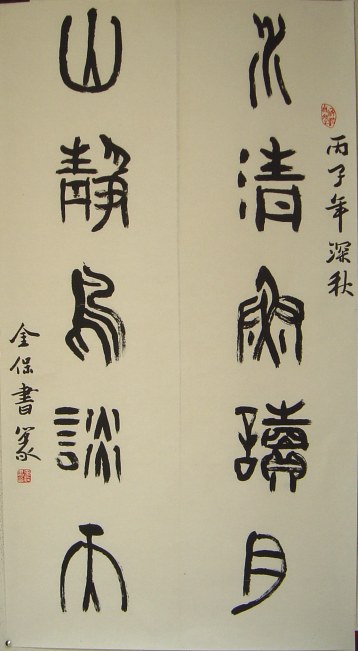 丙子年深秋
水清魚讀月
山靜鳥談天
金保書篆